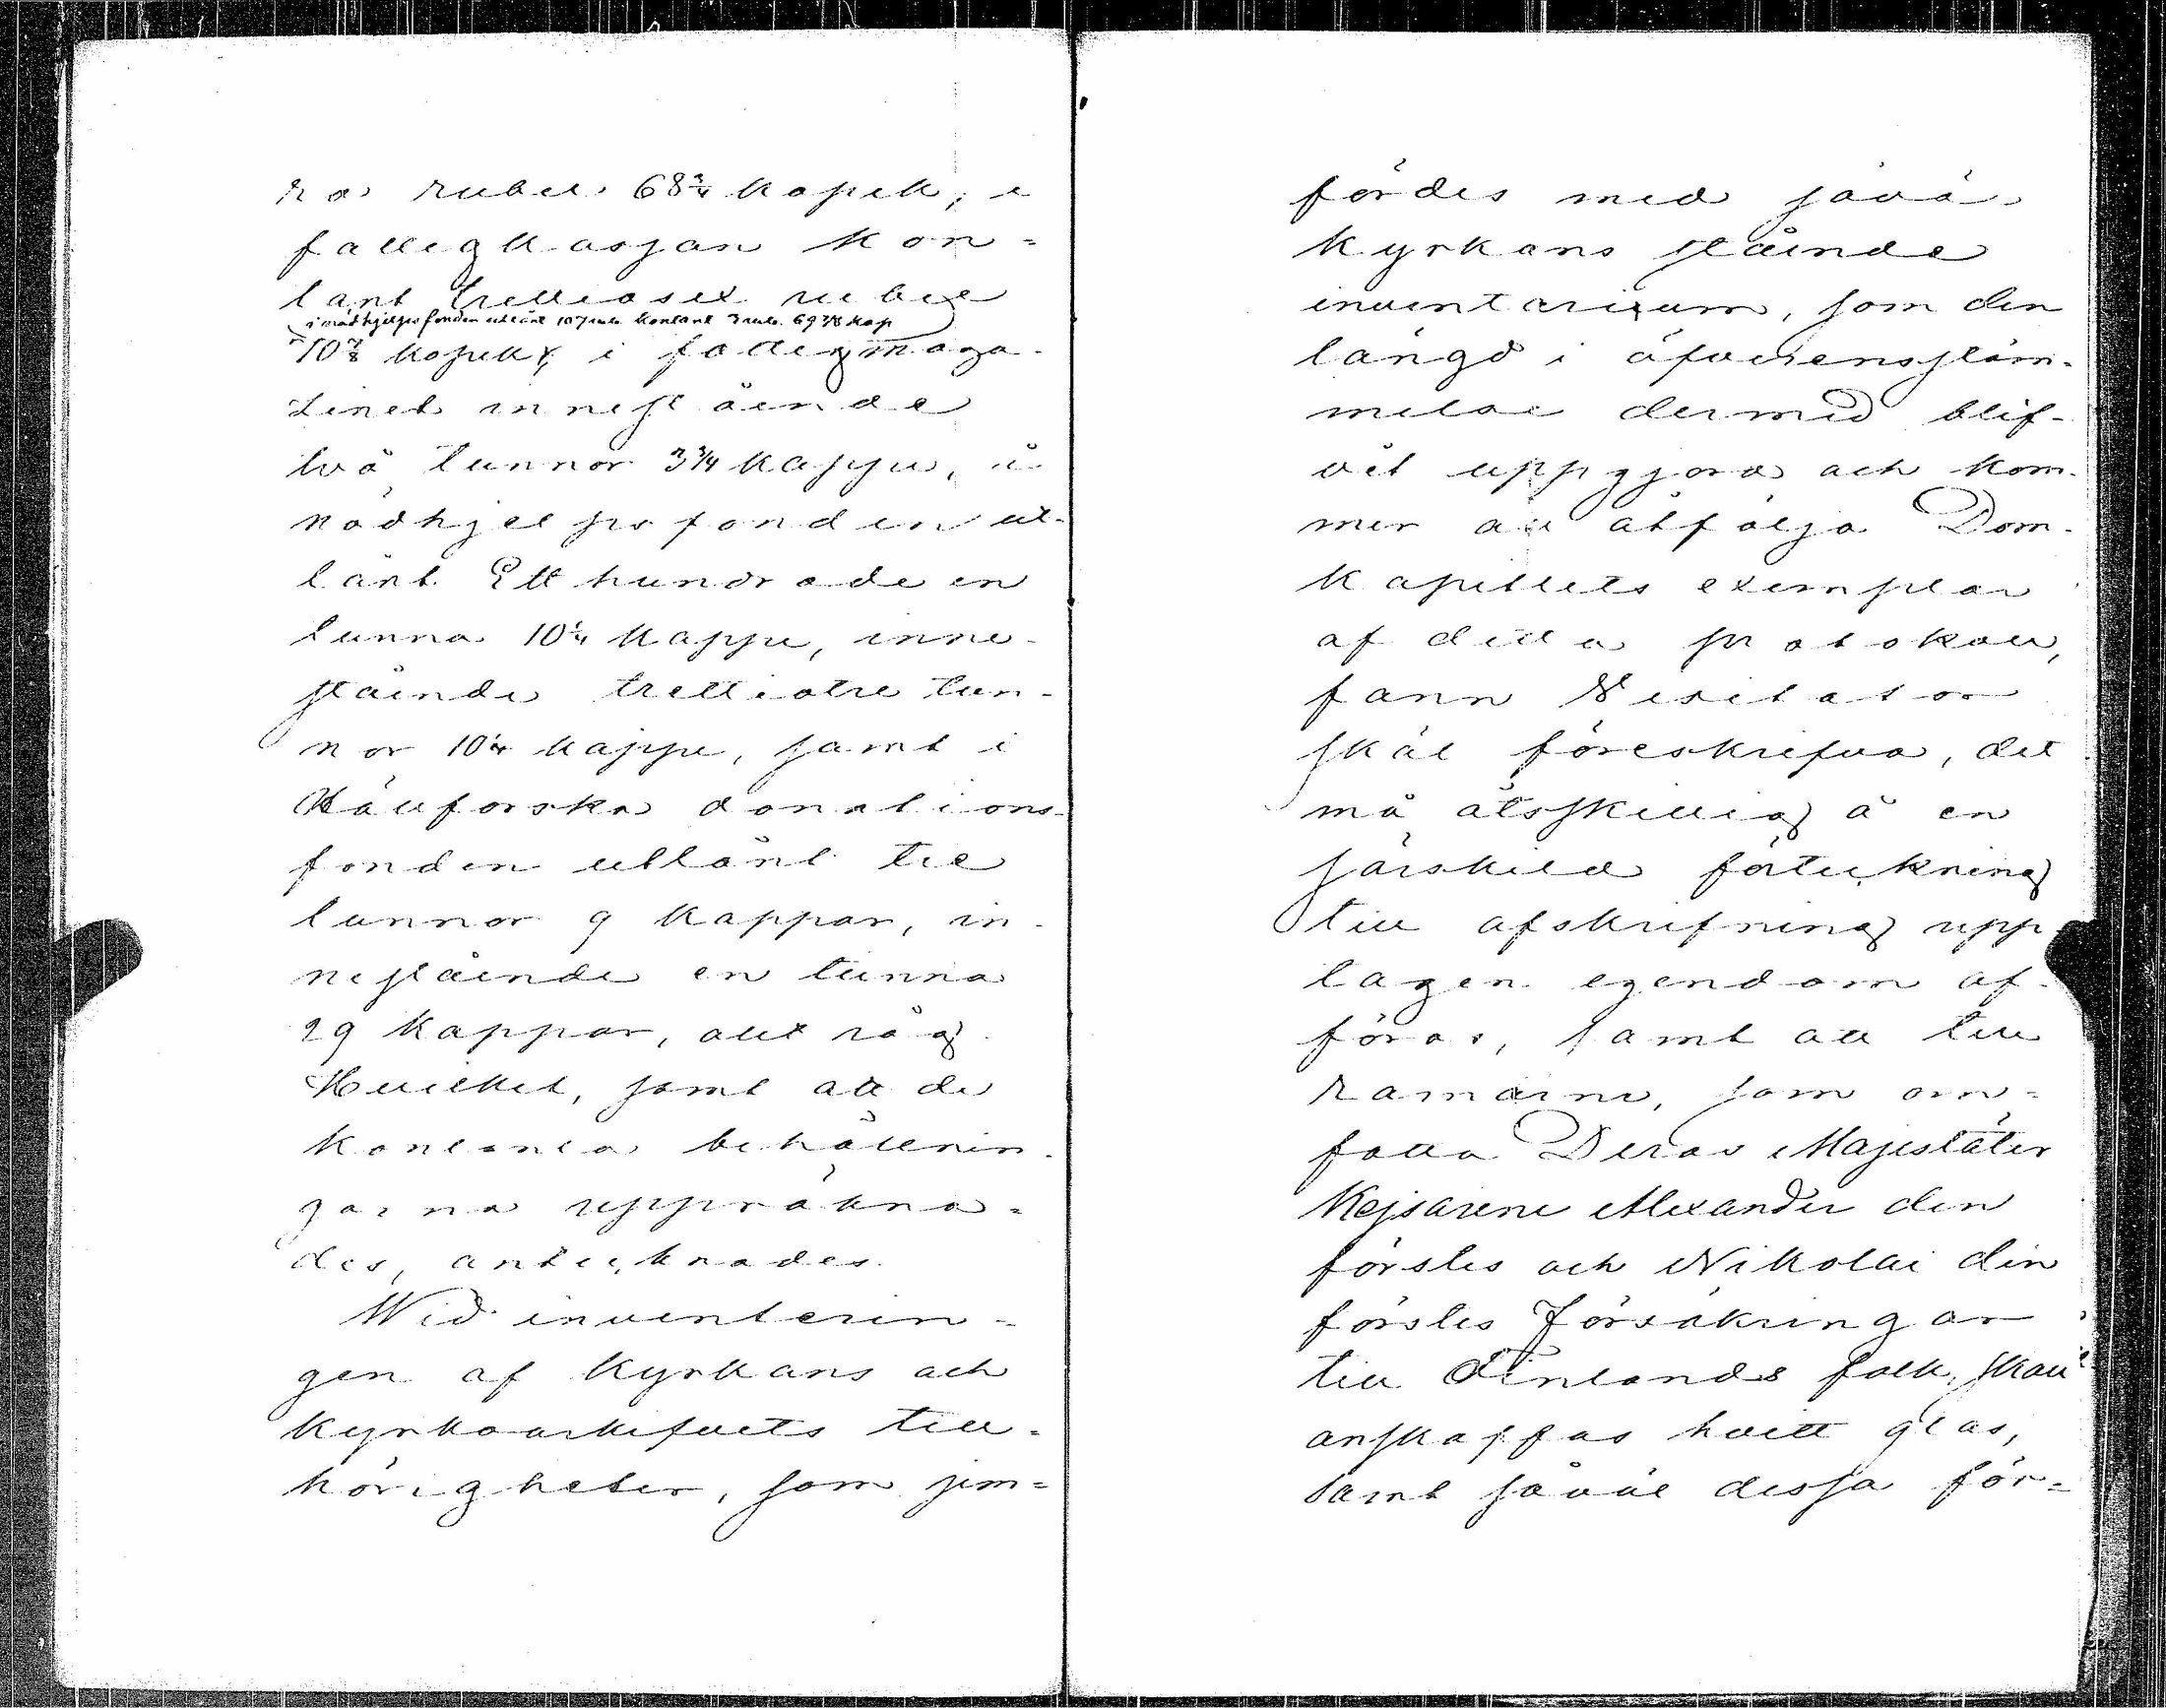 ra rubel 68 3/4 kopek, i
fattigkassan kon=
tant trettiosex rubel
i nödhjelpsfonden utlånt 107 rub. kontant 3 rub. 69 7/8 kop
10 7/8 kopek, i fattigmaga-
sinet innestående
två tunnor 3 3/4 kappe, i
nödhjelpsfonden ut-
lånt Ett hundrade en
tunna 10 1/4 kappe, inne-
stående trettiotre tun-
nor 10 1/4 kappe, samt i
donations-
fonden utlånt tre
tunnor 9 kappar, in-
nestående en tunna
29 kappar, allt råg.
Hvilket, samt att de
kontanta behållnin-
garna uppräkna=
des, antecknades.
Wid inventerin=
gen af kyrkans och
kyrkoarkifvets till-
hörigheter, som jem=
fördes med
kyrkans stående
inventarium, som den
längd i öfverensstäm-
melse dermed blif-
vit uppgjord och kom-
mer att åtfölja Dom-
kapitlets exemplar
af detta protokoll,
fann Visitator
skäl föreskrifva, det
må åtskillig å en
särskild förteckning
till afskrifning upp-
tagen egendom af-
föras, samt att till
ramarne, som om=
fatta Deras Majestäter
Kejsarene Alexander den
förstes och Nikolai den
förstes Försäkringar
till Finlands folk, skall
anskaffas hvitt glas,
samt såväl dessa för=